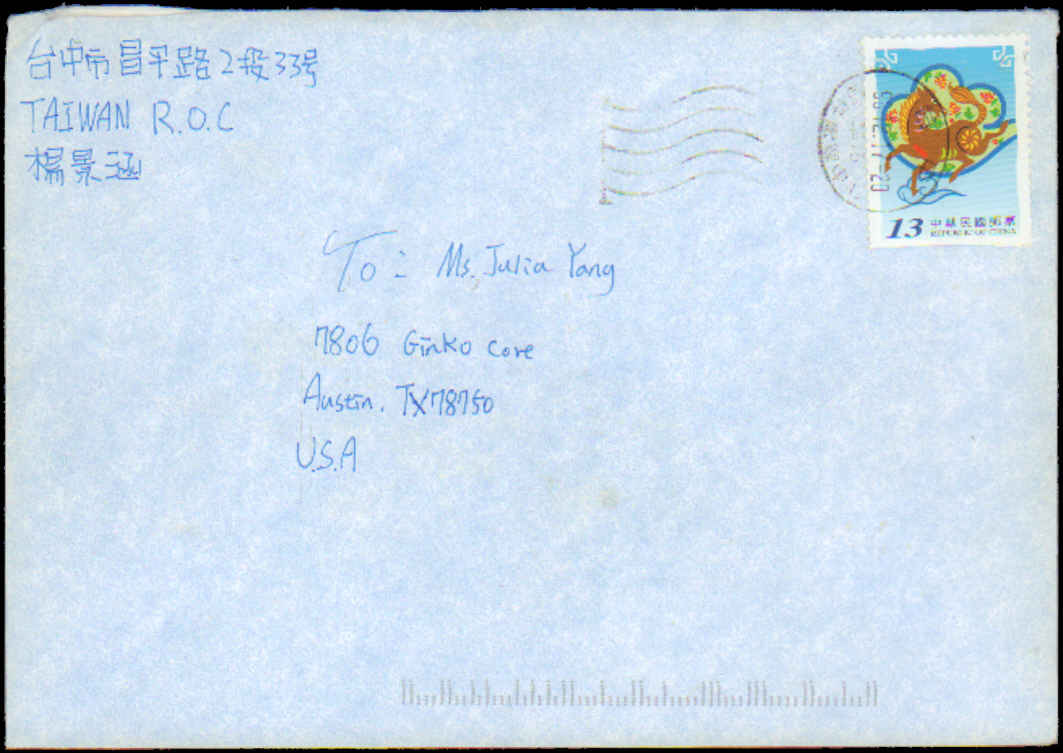 台中市昌平路2段33号
TAIWAN R.O.C
楊景涵
To: Ms. Julia Yang
7806 Ginko Cove
Austin. TX78750
U.S.A
13 中華民國郵票
REPUBLIC OF CHINA